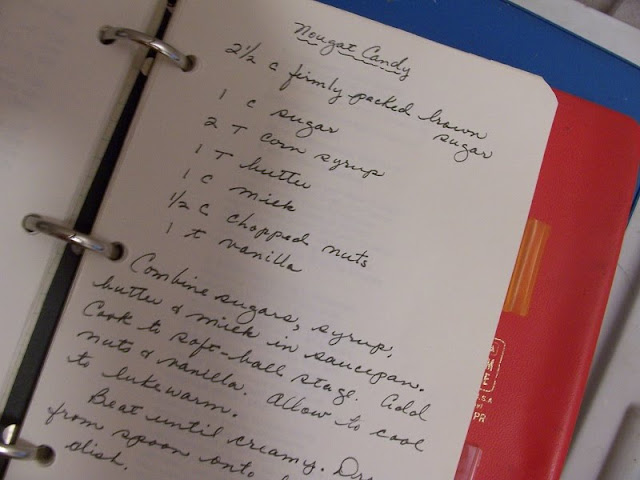 Nougat Candy
2 1/2 c firmly packed brown
sugar
1 c sugar
2 T corn syrup
1 T butter
1 c milk
1/2 c chopped nuts
1 t vanilla
Combine sugars, syrup,
butter & milk in saucepan.
Cook to soft-ball stage. Add
nuts & vanilla. Allow to cool
to lukewarm.
Beat until creamy.
from spoon onto
dish.
PR